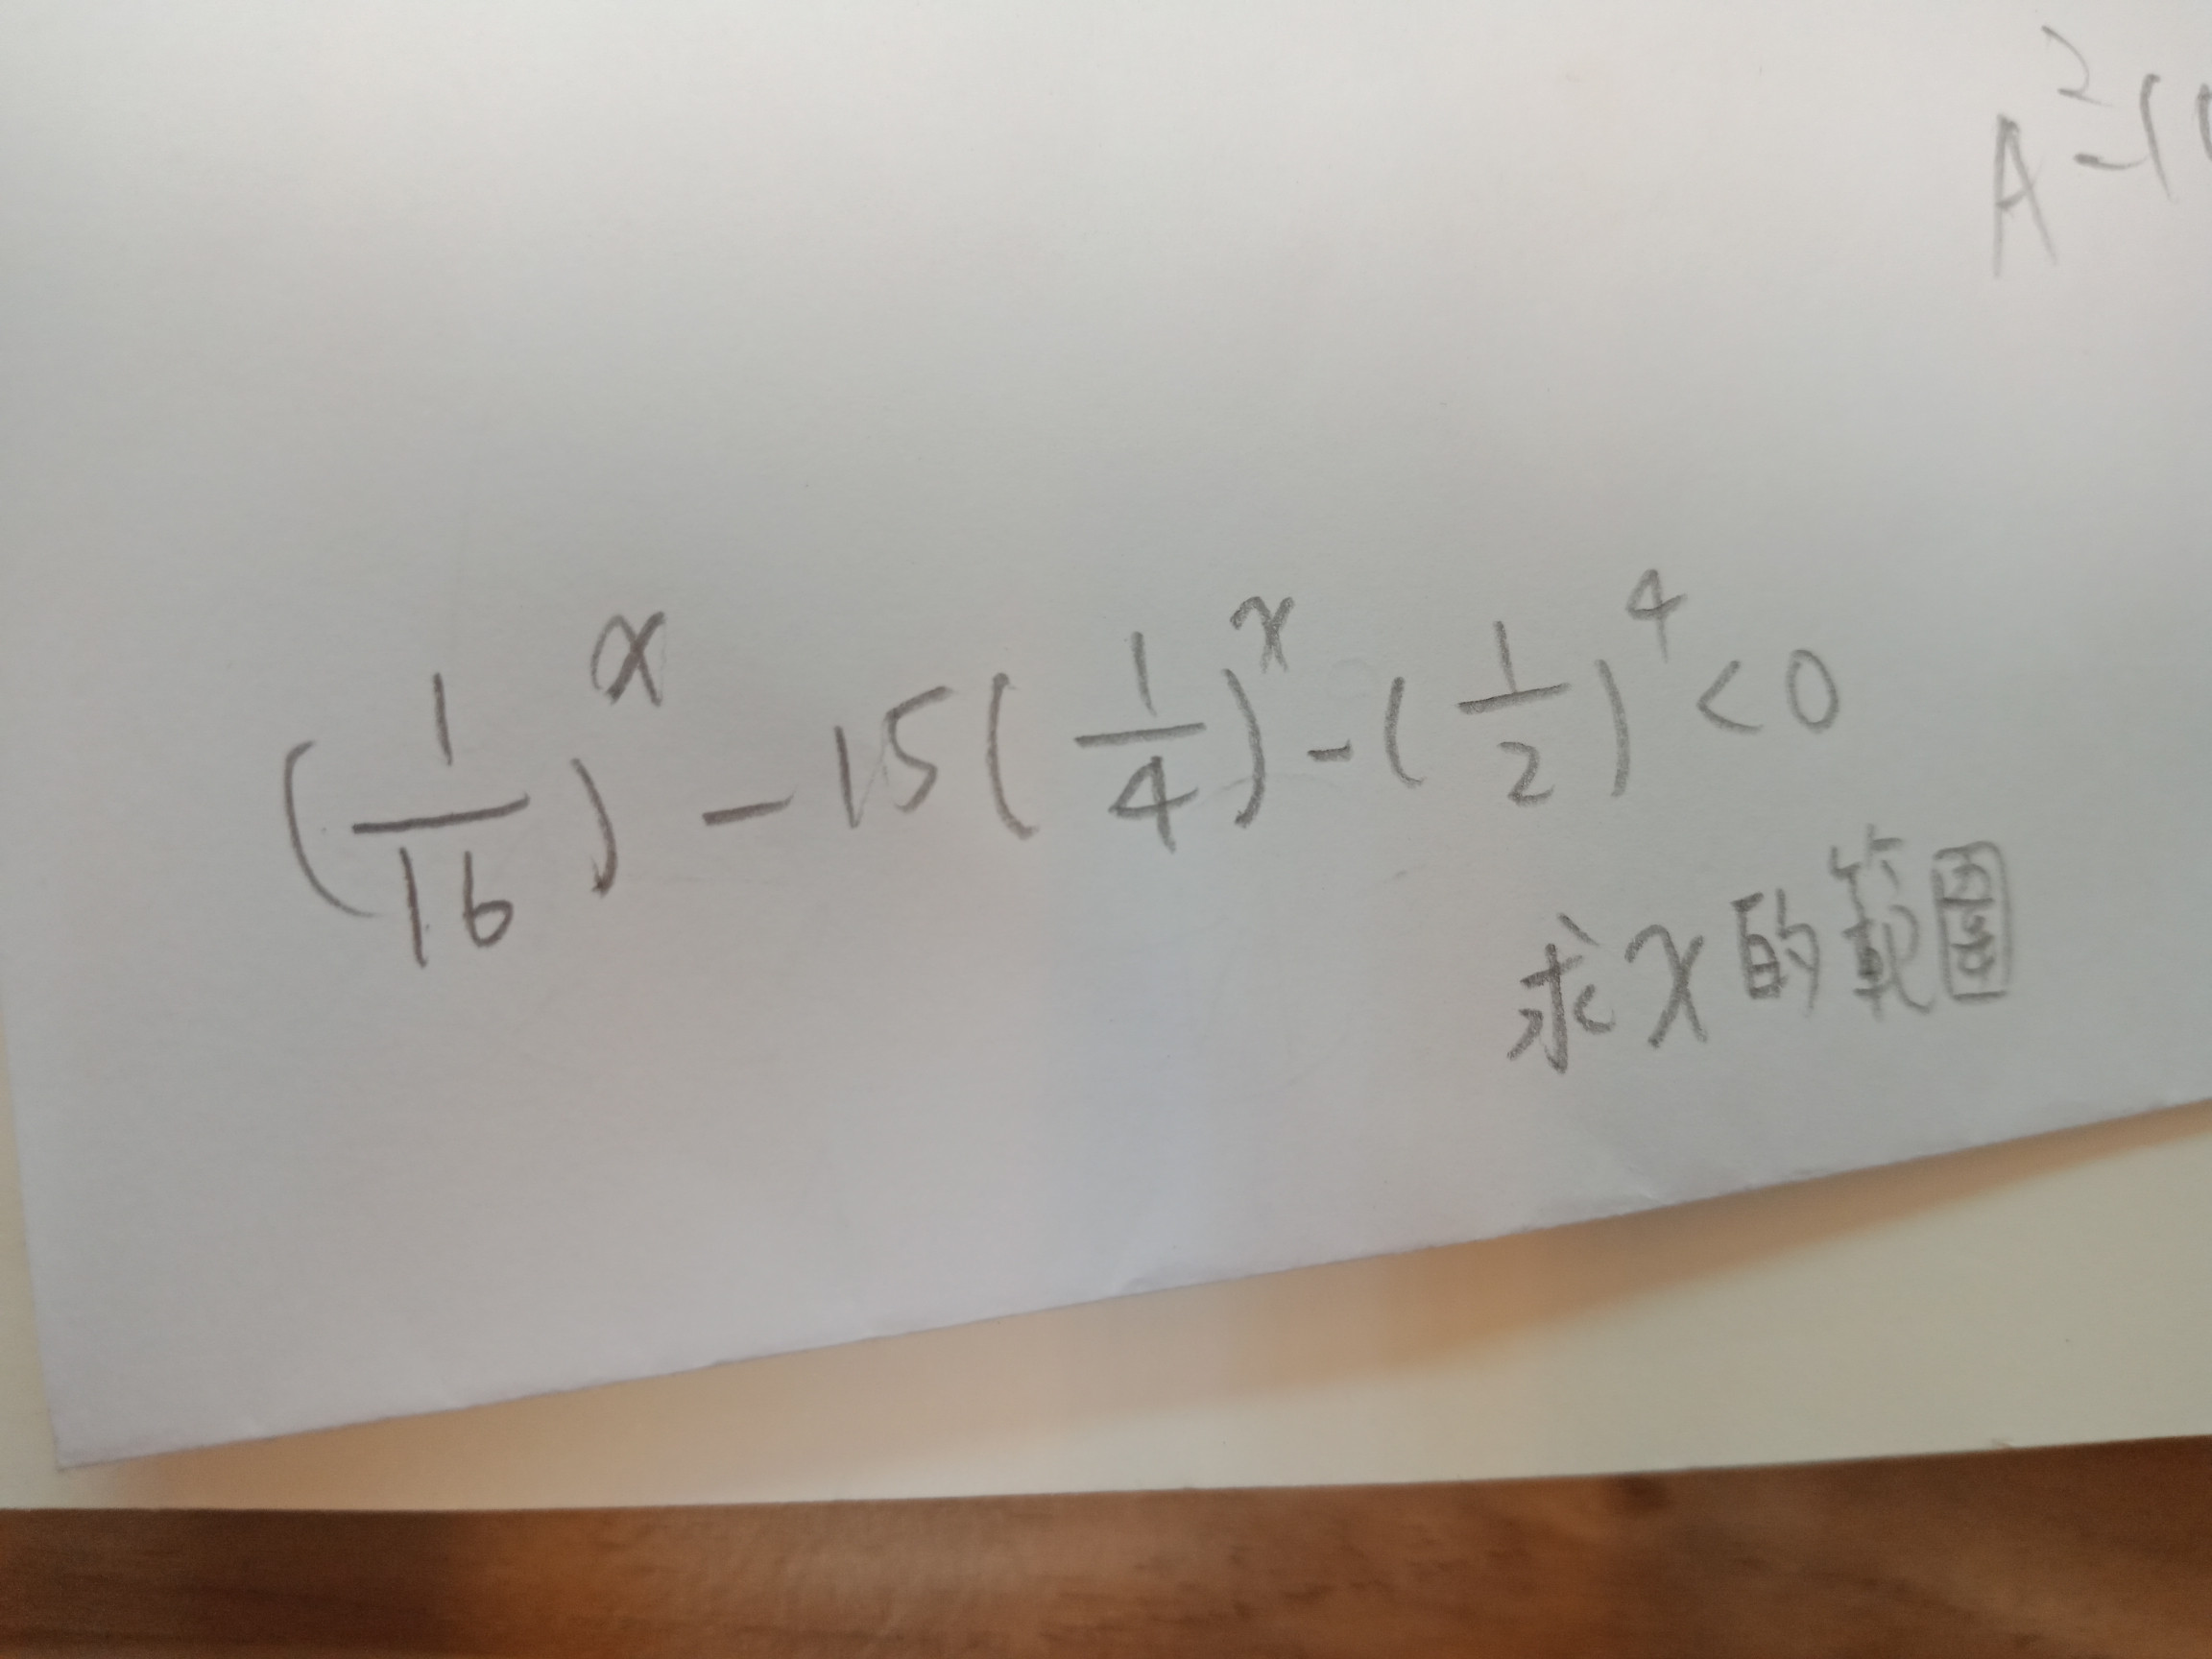 A²-(
(1/16)^x - 15(1/4)^x - (1/2)^4 < 0
求x的範圍